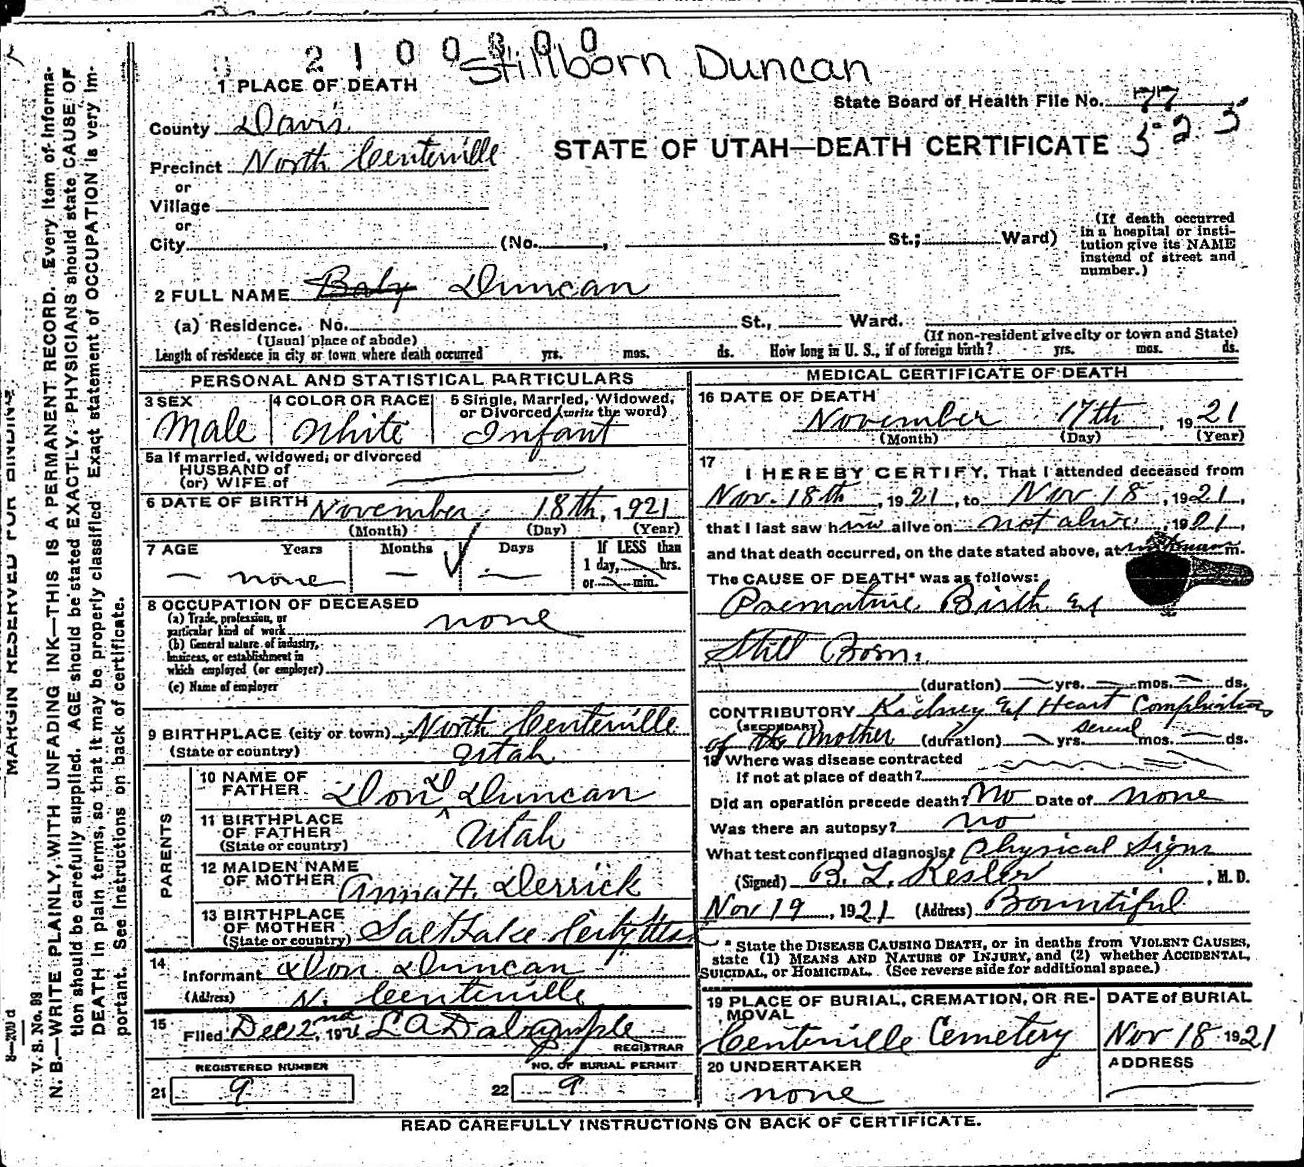 2 1 0 0 0 0 0
Stillborn Duncan
1 PLACE OF DEATH
State Board of Health File No. 77
County Davis
STATE OF UTAH—DEATH CERTIFICATE 525
Precinct North Centerville
or
Village
or
City (No. , St.; Ward)
(If death occurred in a hospital or institution give its NAME instead of street and number.)
2 FULL NAME Baby Duncan
(a) Residence. No. St., Ward.
(Usual place of abode) (If non-resident give city or town and State)
Length of residence in city or town where death occurred yrs. mos. ds. How long in U. S., if of foreign birth? yrs. mos. ds.
PERSONAL AND STATISTICAL PARTICULARS
3 SEX Male
4 COLOR OR RACE White
5 Single, Married, Widowed, or Divorced (write the word) Infant
5a If married, widowed, or divorced
HUSBAND of
(or) WIFE of
6 DATE OF BIRTH November 18th, 1921
(Month) (Day) (Year)
7 AGE Years Months Days If LESS than
— none — — 1 day, hrs.
or min.
8 OCCUPATION OF DECEASED
(a) Trade, profession, or
particular kind of work none
(b) General nature of industry,
business, or establishment in
which employed (or employer)
(c) Name of employer
9 BIRTHPLACE (city or town) North Centerville
(State or country) Utah
PARENTS
10 NAME OF FATHER Don D Duncan
11 BIRTHPLACE OF FATHER
(State or country) Utah
12 MAIDEN NAME OF MOTHER Anna H. Derrick
13 BIRTHPLACE OF MOTHER
(State or country) Salt Lake City Utah
14 Informant Don Duncan
(Address) N. Centerville
15 Filed Dec 2nd, 1921 L A Dalrymple
REGISTRAR
REGISTERED NUMBER
21 9
NO. OF BURIAL PERMIT
22 9
MEDICAL CERTIFICATE OF DEATH
16 DATE OF DEATH
November 17th, 1921
(Month) (Day) (Year)
17 I HEREBY CERTIFY, That I attended deceased from
Nov. 18th, 1921, to Nov 18, 1921,
that I last saw him alive on not alive, 1921,
and that death occurred, on the date stated above, at m.
The CAUSE OF DEATH* was as follows:
Premature Birth &
Still Born.
(duration) — yrs. — mos. — ds.
CONTRIBUTORY Kidney & Heart Complication
(SECONDARY)
of the Mother (duration) — yrs. several mos. — ds.
18 Where was disease contracted
if not at place of death?
Did an operation precede death? No Date of none
Was there an autopsy? No
What test confirmed diagnosis? Physical Signs
(Signed) B. L. Kesler, M.D.
Nov 19, 1921 (Address) Bountiful
* State the DISEASE CAUSING DEATH, or in deaths from VIOLENT CAUSES,
state (1) MEANS AND NATURE OF INJURY, and (2) whether ACCIDENTAL,
SUICIDAL, or HOMICIDAL. (See reverse side for additional space.)
19 PLACE OF BURIAL, CREMATION, OR REMOVAL
Centerville Cemetery
DATE of BURIAL
Nov 18 1921
20 UNDERTAKER
none
ADDRESS
READ CAREFULLY INSTRUCTIONS ON BACK OF CERTIFICATE.
MARGIN RESERVED FOR BINDING
V. S. No. 89
N. B.—WRITE PLAINLY, WITH UNFADING INK—THIS IS A PERMANENT RECORD. Every item of information
should be carefully supplied. AGE should be stated EXACTLY. PHYSICIANS should state CAUSE OF
DEATH in plain terms, so that it may be properly classified. Exact statement of OCCUPATION is very important.
See instructions on back of certificate.